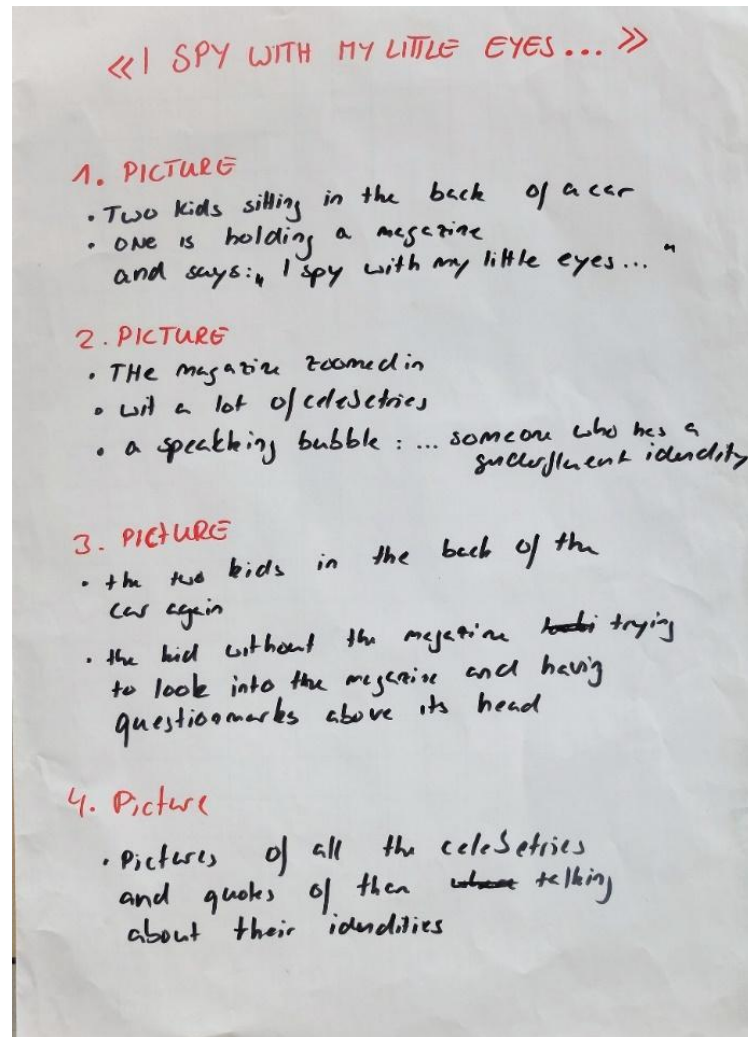 «I SPY WITH MY LITTLE EYES... »
1. PICTURE
• Two kids sitting in the back of a car
• ONE is holding a magazine
and says: „ I spy with my little eyes... "
2. PICTURE
• THe magazine zoomed in
• wit a lot of celebetries
• a speakking bubble : ... someone who has a
identity
3. PICTURE
• the two kids in the back of the
car again
• the kid without the magazine trying
to look into the magazine and havig
questionmarks above its head
4. Picture
• Pictures of all the celebetries
and quotes of then talking
about their idendities